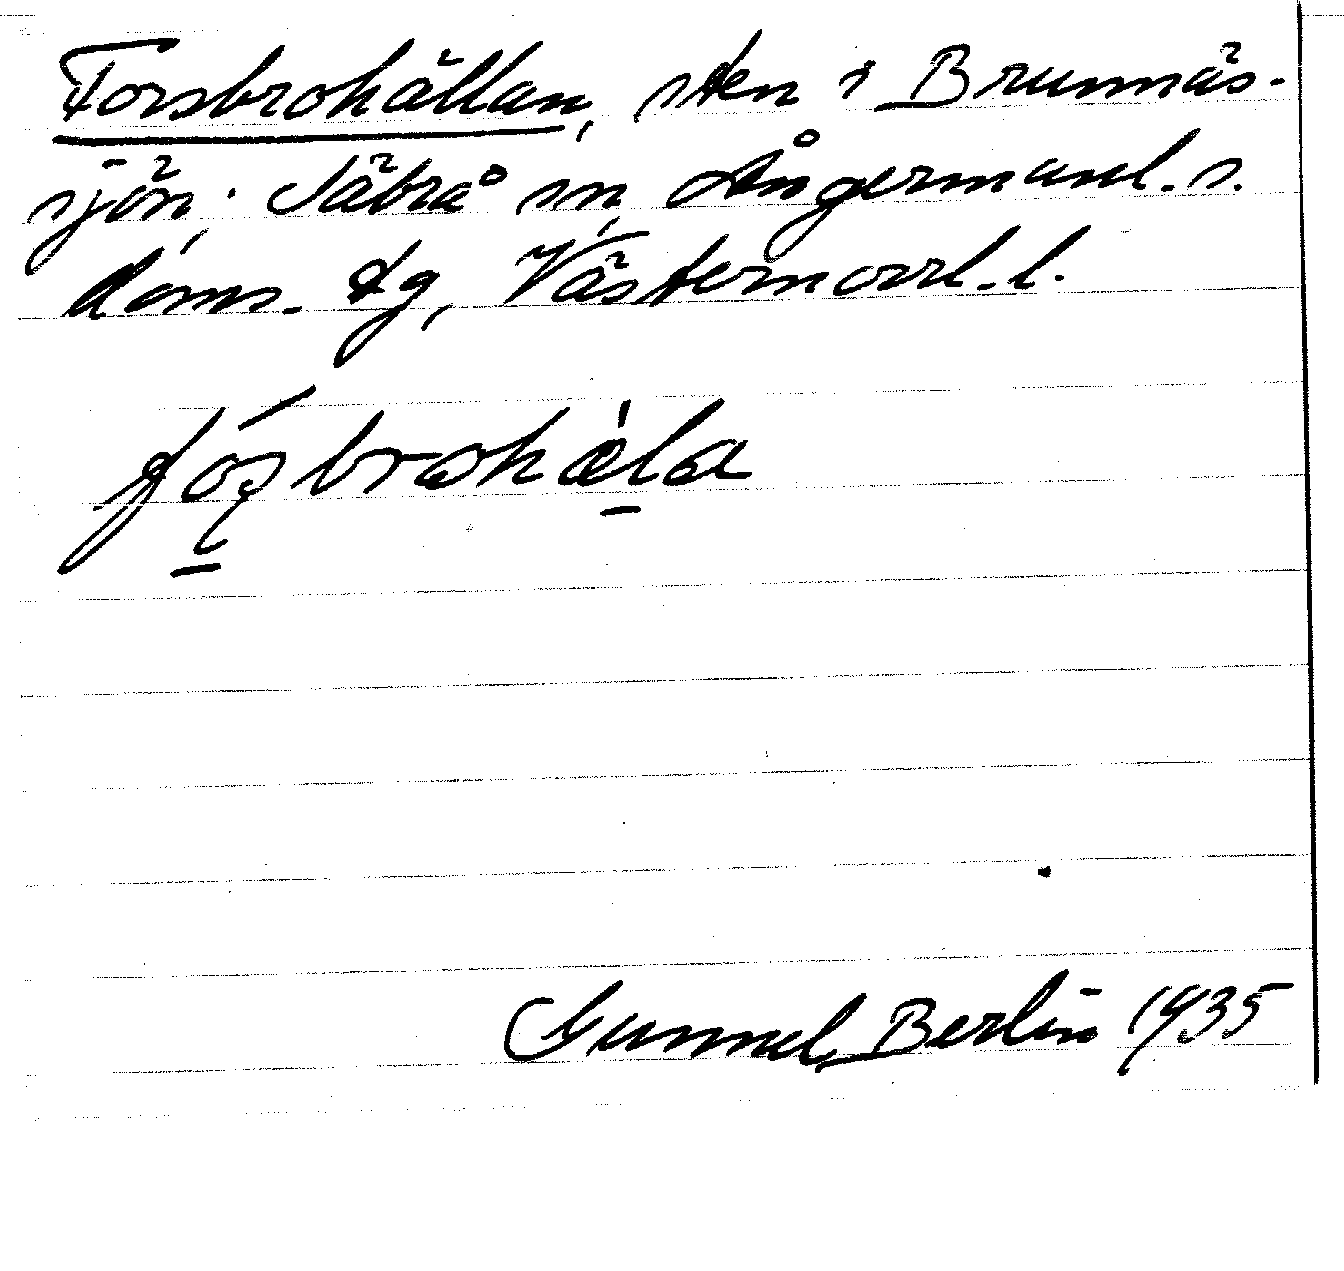 Forsbrohällan, sten i Brunnäs-
sjön, Säbrå sn, Ångermanl. s.
doms. tg, Västernorrl. l.
fóʂbrohæ̀la
Gunnel Berlin 1935